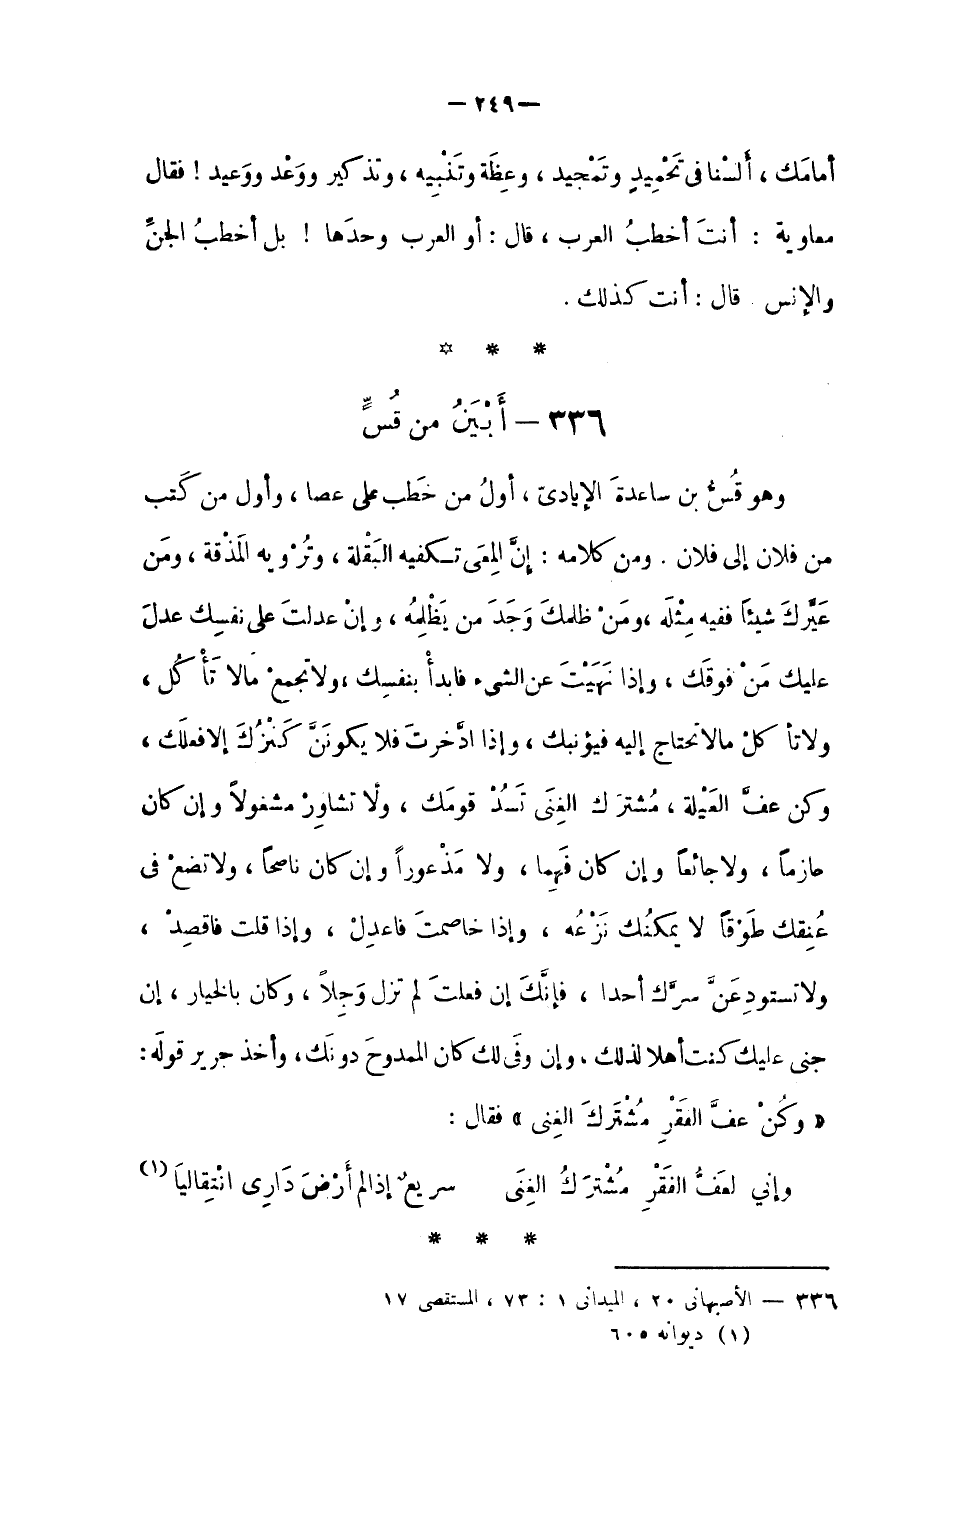 — ٢٤٩ —
أمامَك ، أَلسْنا فى تَحْمِيدٍ وتَمْجيد ، وعِظَة وتَنْبِيه ، وتذكير ووَعْد ووَعيد ! فقال
معاوية : أنتَ أخطبُ العرب ، قال : أو العرب وحدَها ! بل أخطبُ الجنِّ
والإنس . قال : أنت كذلك .
* * *
٣٣٦ — أَبْيَنُ من قُسٍّ
وهو قُسُّ بن ساعدةَ الإيادىّ ، أولُ من خَطب على عصا ، وأول من كَتب
من فلان إلى فلان . ومن كلامه : إنَّ المِعَى تكفيه البَقْلة ، وتُرْويه المَذْقة ، ومَن
عَيَّركَ شيئاً ففيه مِثْلُه ، ومَنْ ظلمكَ وَجَدَ من يَظْلِمُه ، وإنْ عدلتَ على نفسِك عدلَ
عليك مَنْ فوقَك ، وإذا نَهَيْتَ عن الشىء فابدأْ بنفسِك ، ولا تجمعْ مالا تَأْكُل ،
ولا تأكلْ مالا تحتاج إليه فيؤنبك ، وإذا ادَّخرتَ فلا يكونَنَّ كَنْزُكَ إلا فعلَك ،
وكن عفَّ العَيْلة ، مُشتركَ الغِنَى تَسُدْ قومَك ، ولا تشاوِرْ مشغولاً وإن كان
حازماً ، ولا جائعاً وإن كان فَهِما ، ولا مَذْعوراً وإن كان ناصحاً ، ولا تضعْ فى
عُنِقك طَوْقاً لا يمكنُك نَزْعُه ، وإذا خاصمتَ فاعدِلْ ، وإذا قلت فاقصِدْ ،
ولا تستودِعَنَّ سرَّك أحدا ، فإنَّكَ إن فعلتَ لم تزل وَجِلاً ، وكان بالخيار ، إن
جنى عليك كنت أهلا لذلك . وإن وفَى لك كان الممدوحَ دونَك ، وأخذ جرير قولَه :
« وكُنْ عفَّ الفَقْرِ مُشْتَركَ الغِنى » فقال :
وإني لعَفُّ الفَقْرِ مُشْتَركُ الغِنَى سريعٌ إذا لم أَرْضَ دَارِى انْتِقاليَا (١)
* * *
٣٣٦ — الأصبهانى ٢٠ ، الميدانى ١ : ٧٣ ، المستقصى ١٧
(١) ديوانه ٦٠٥